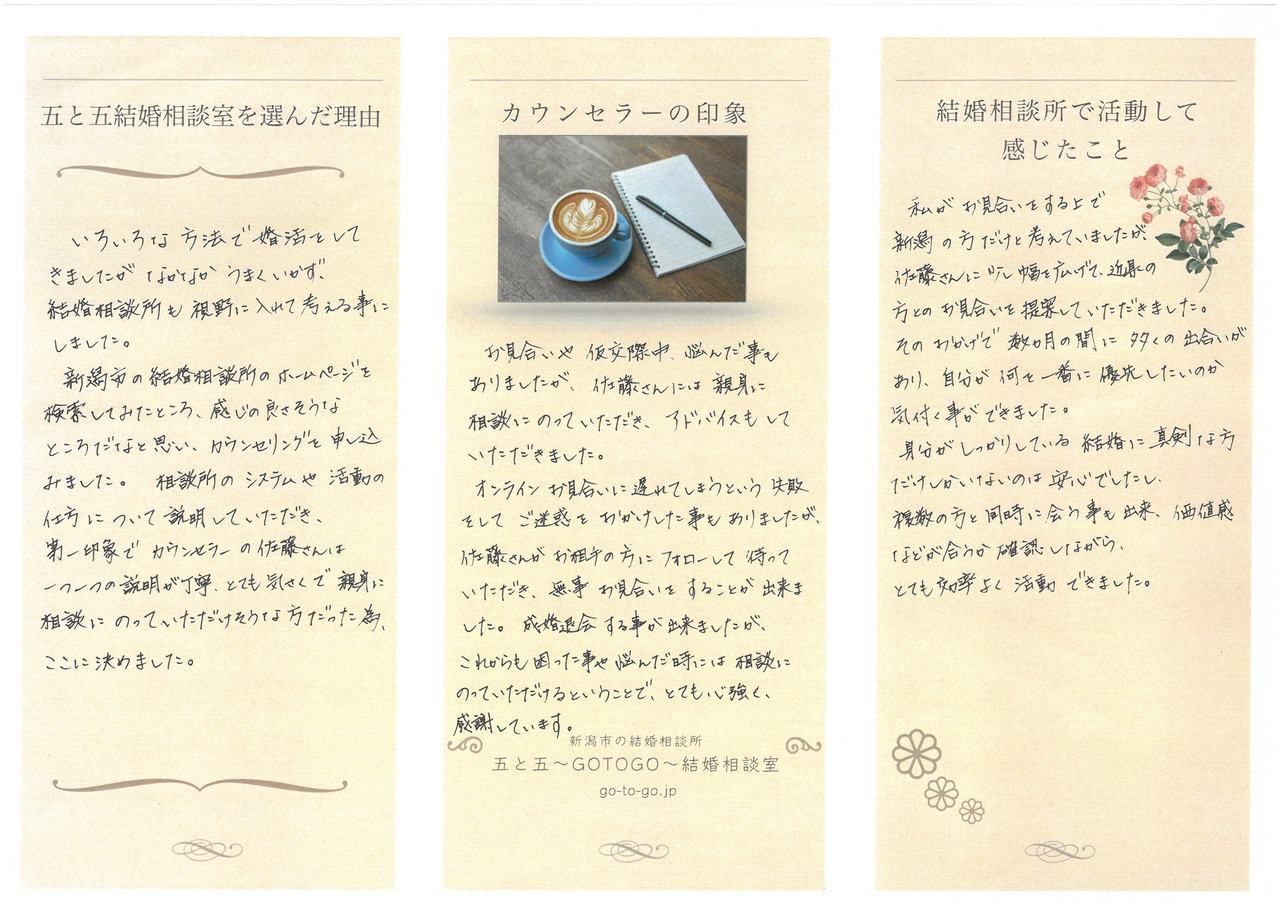 五と五結婚相談室を選んだ理由
いろいろな方法で婚活をして
きましたがなかなかうまくいかず、
結婚相談所も視野に入れて考える事に
しました。
新潟市の結婚相談所のホームページを
検索してみたところ、感じの良さそうな
ところだなと思い、カウンセリングを申し込
みました。 相談所のシステムや活動の
仕方について説明していただき、
第一印象でカウンセラーの佐藤さんは
一つ一つの説明が丁寧、とても気さくで親身に
相談にのっていただけそうな方だった為、
ここに決めました。
カウンセラーの印象
お見合いや仮交際中、悩んだ事も
ありましたが、佐藤さんには親身に
相談にのっていただき、アドバイスもして
いただきました。
オンラインお見合いに遅れてしまうという失敗
をしてご迷惑をおかけした事もありましたが、
佐藤さんがお相手の方にフォローして待って
いただき、無事お見合いをすることが出来ま
した。成婚退会する事が出来ましたが、
これからも困った事や悩んだ時には相談に
のっていただけるということで、とても心強く、
感謝しています。
新潟市の結婚相談所
五と五～GOTOGO～結婚相談室
go-to-go.jp
結婚相談所で活動して
感じたこと
私がお見合いをする上で
新潟の方だけと考えていましたが、
佐藤さんに少し幅を広げて、近県の
方とのお見合いを提案していただきました。
そのおかげで数ヵ月の間に多くの出合いが
あり、自分が何を一番に優先したいのか
気付く事ができました。
身分がしっかりしている結婚に真剣な方
だけしかいないのは安心でしたし、
複数の方と同時に会う事も出来、価値感
などが合うか確認しながら、
とても効率よく活動できました。